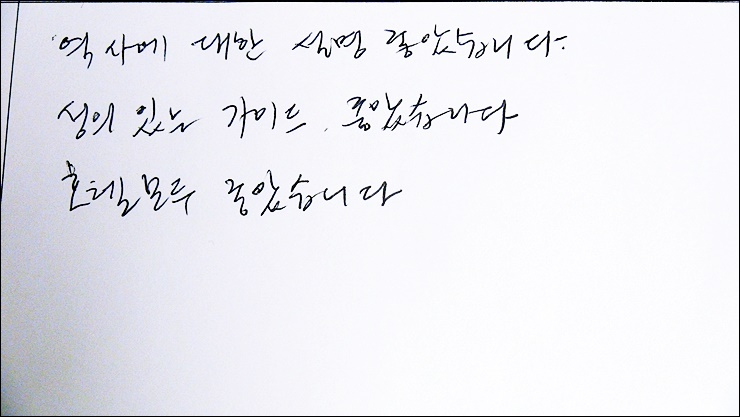 역사에 대한 설명 좋았습니다.
성의 있는 가이드 좋았습니다
호텔모두 좋았습니다